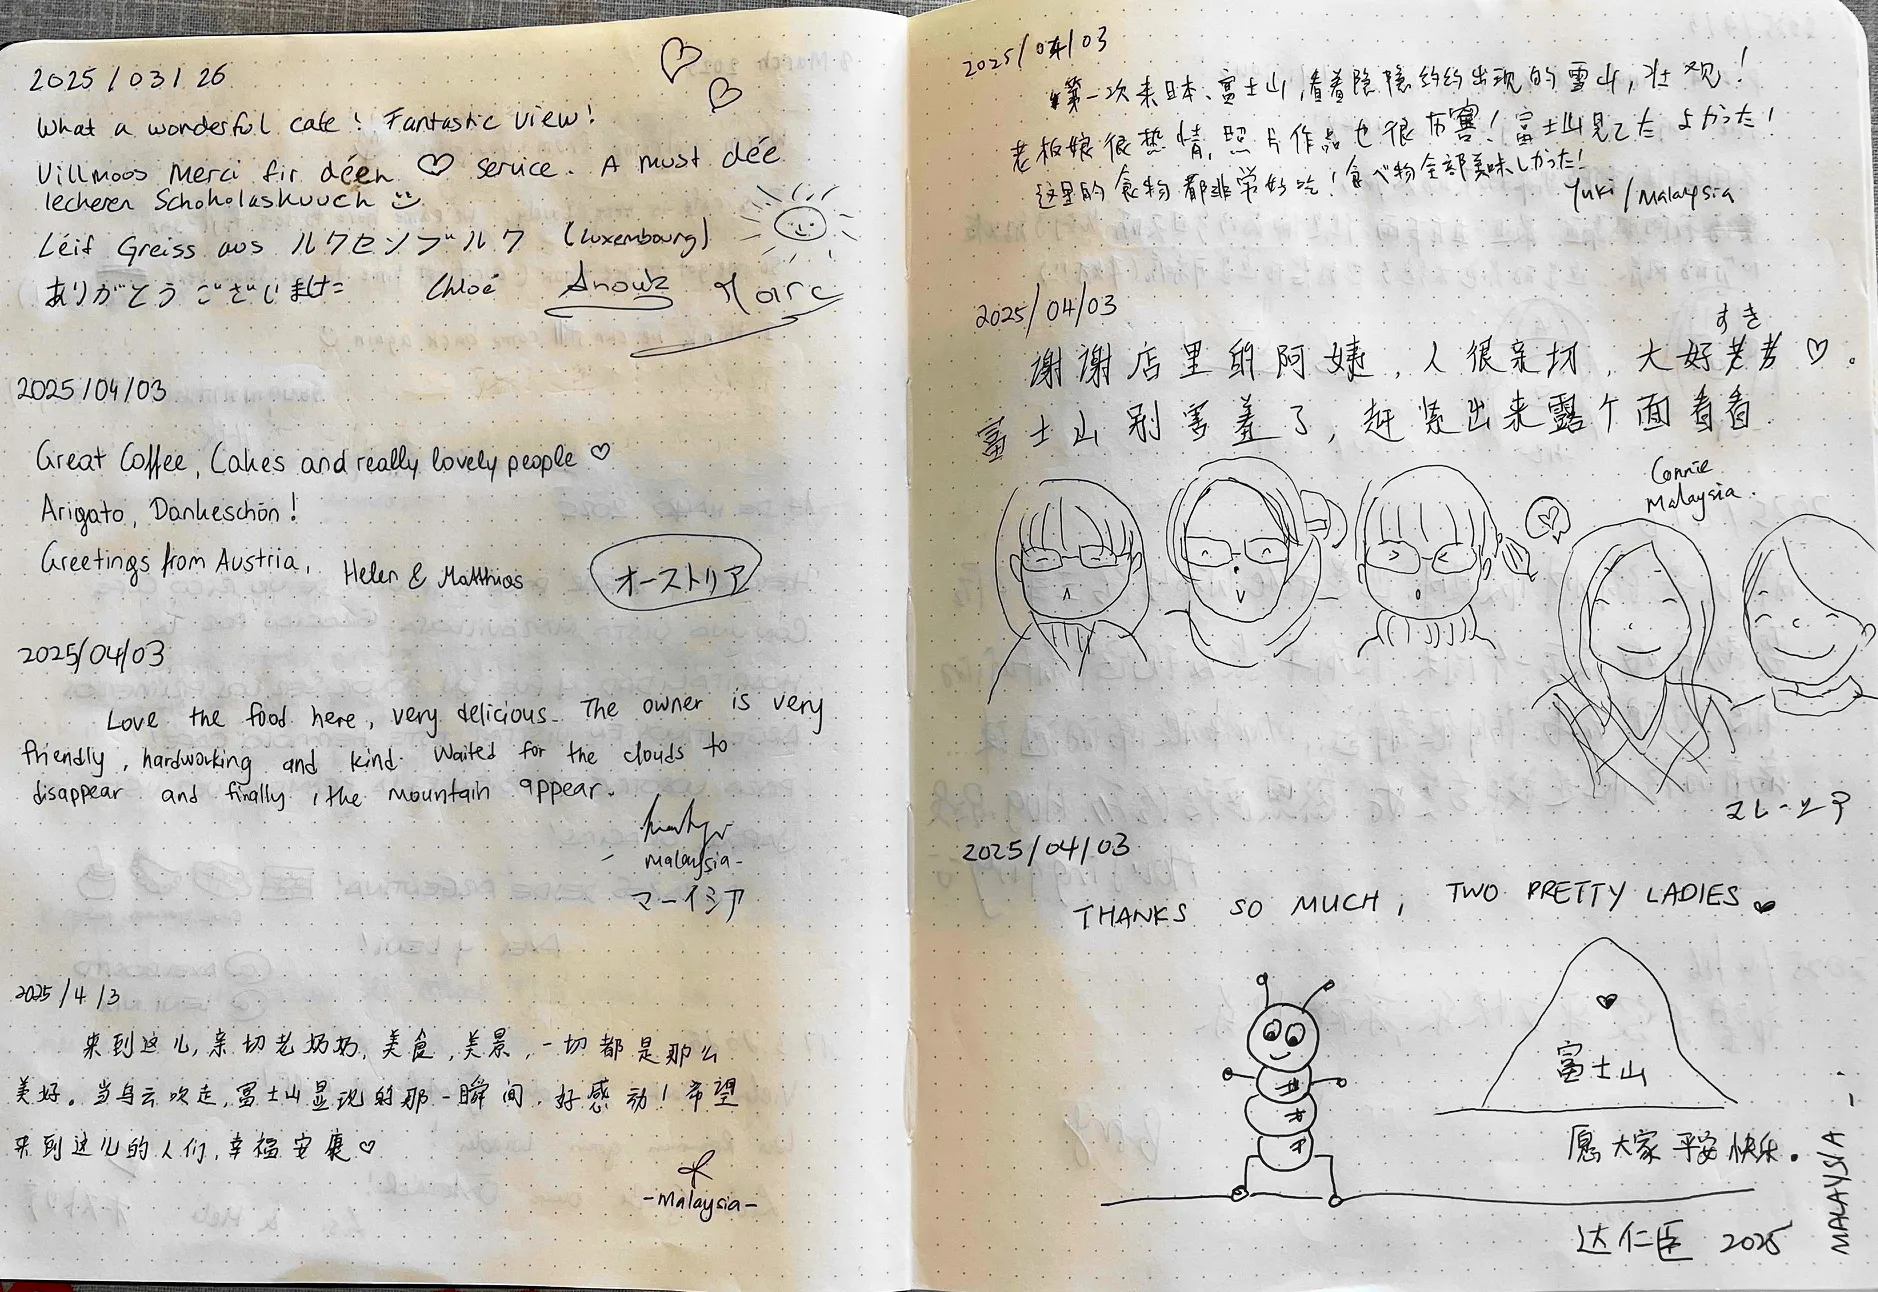 2025/03/26
What a wonderful cafe! Fantastic view!
Villmoos Merci fir déen ♡ service. A must dée
lecheren Schokolaskuuch
Léif Greiss aus ルクセンブルク (Luxembourg)
ありがとうございました Chloé Anouk Marc
2025/04/03
Great Coffee, Cakes and really lovely people ♡
Arigato, Dankeschön!
Greetings from Austria, Helen & Matthias オーストリア
2025/04/03
Love the food here, very delicious. The owner is very
friendly, hardworking and kind. Waited for the clouds to
disappear and finally, the mountain appear.
Malaysia-
マーイシア
2025/4/3
来到这儿,亲切老奶奶,美食,美景,一切都是那么
美好。当乌云吹走,富士山显现的那一瞬间,好感动!希望
来到这儿的人们,幸福安康♡
-Malaysia-
2025/04/03
第一次来日本、富士山,看着隐隐约约出现的雪山,壮观!
老板娘很热情,照片作品也很厉害!富士山見てたよかった!
这里的食物都非常好吃!食べ物全部美味しかった!
Yuki/Malaysia
2025/04/03
すき
谢谢店里的阿姨,人很亲切,大好き♡。
富士山别害羞了,赶紧出来露个面看看
Connie
Malaysia.
2025/04/03
THANKS SO MUCH, TWO PRETTY LADIES
富士山
愿大家平安快乐.
达仁臣 2025
MALAYSIA